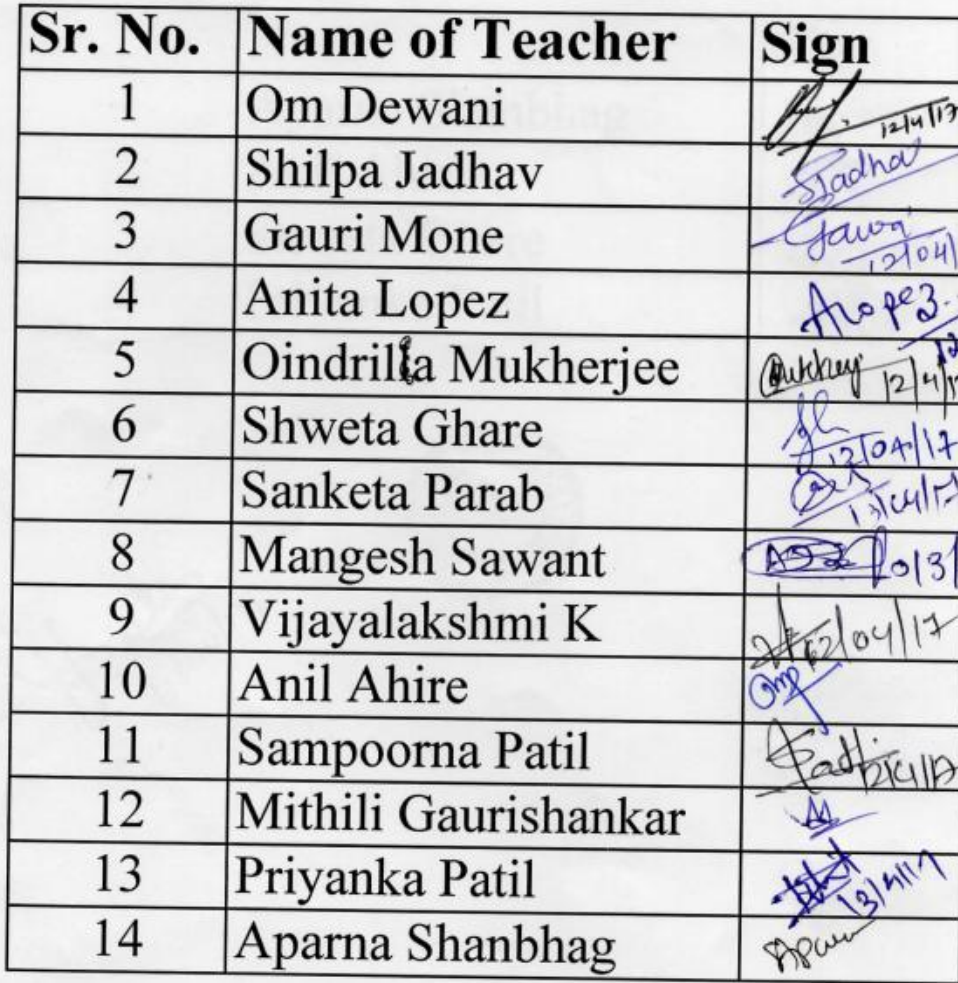 Sr. No. Name of Teacher Sign
1 Om Dewani 12/4/17
2 Shilpa Jadhav SJadhav
3 Gauri Mone Gauri 12/04/
4 Anita Lopez ALopez
5 Oindrilla Mukherjee 12/4/17
6 Shweta Ghare 12/04/17
7 Sanketa Parab 13/04/17
8 Mangesh Sawant
9 Vijayalakshmi K 12/04/17
10 Anil Ahire
11 Sampoorna Patil 12/4/17
12 Mithili Gaurishankar
13 Priyanka Patil 13/4/17
14 Aparna Shanbhag